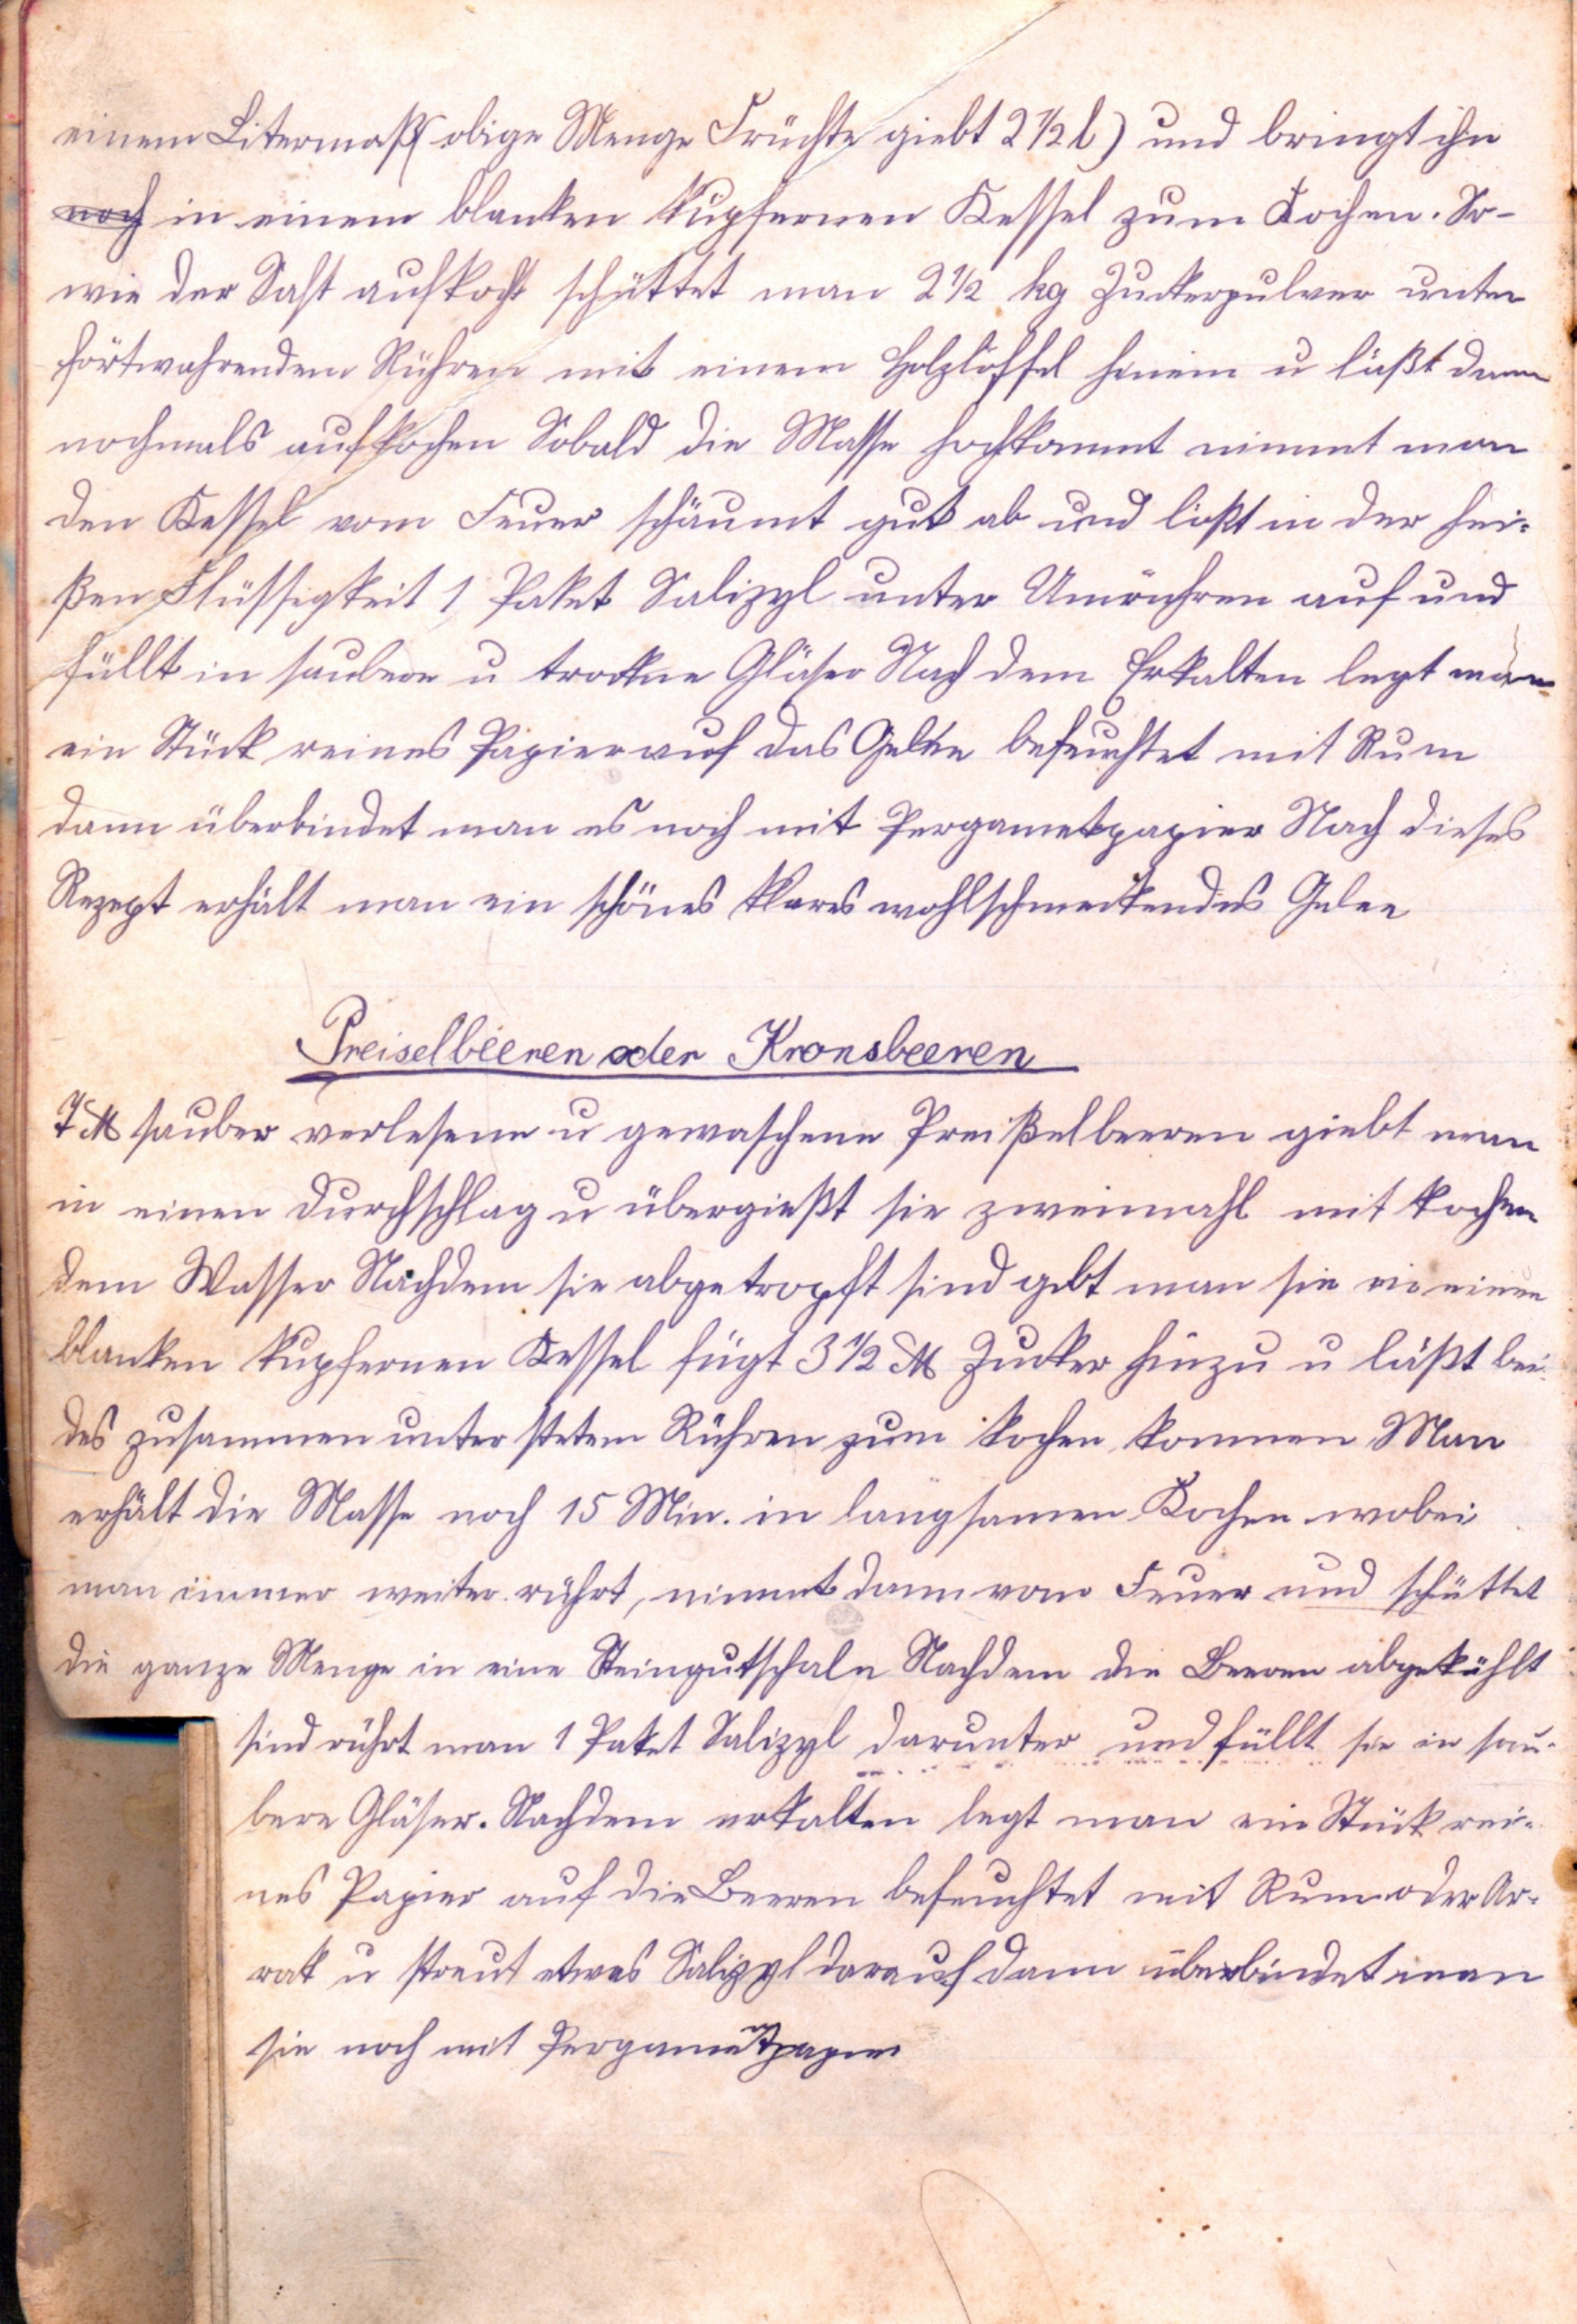 einem Litermaß (obige Menge Früchte giebt 2 1/2 l) und bringt ihn
noch in einem blanken kupfernen Kessel zum Kochen. So-
wie der Saft aufkocht schüttet man 2 1/2 kg Zuckerpulver unter
fortwahrendem Rühren mit einem Holzlöffel hinein u läßt dann
nochmals aufkochen Sobald die Masse hochkommt nimmt man
den Kessel vom Feuer schäumt gut ab und löst in der hei-
ßen Flüssigkeit 1 Paket Salizyl unter Umrühren auf und
füllt in saubere u trockne Gläser Nach dem Erkalten legt man
ein Stück reines Papier auf das Gelee befeuchtet mit Rum
dann überbindet man es noch mit Pergametpapier Nach dieses
Rezept erhält man ein schönes klares wohlschmeckendes Gelee
Preiselbeeren oder Kronsbeeren
7 ℔ sauber verlesene u gewaschene Preißelbeeren giebt man
in einen Durchschlag u übergießt sie zweimahl mit kochen
dem Wasser Nachdem sie abgetropft sind gibt man sie in einen
blanken kupfernen Kessel fügt 3 1/2 ℔ Zucker hinzu u läßt bei-
des zusammen unter stetem Rühren zum kochen kommen Man
erhält die Masse noch 15 Min. in langsamen Kochen wobei
man immer weiter rührt, nimmt dann vom Feuer und schüttet
die ganze Menge in eine Steingutschale Nachdem die Beeren abgekühlt
sind rührt man 1 Paket Salizyl darunter und füllt sie in sau-
bere Gläser. Nachdem erkalten legt man ein Stück rei-
nes Papier auf die Beeren befeuchtet mit Rum oder Ar-
rak u streut etwas Salizyl darauf dann überbindet man
sie noch mit Pergametpapier